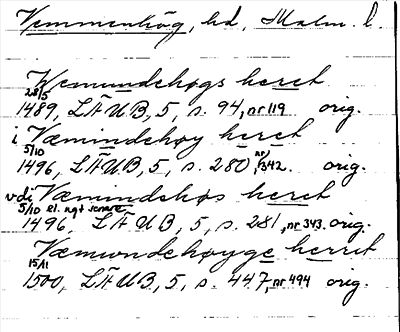 Vemmenhög, hd, Malm. l.
Wemundehøgs heret
28/5
1489, LÄUB, 5, s. 94, nr 119 orig.
i Væmindehøy heret
5/10
1496, LÄUB, 5, s. 280, nr 342. orig.
vdi Væmindehøs heret
5/10 el. ngt senare
1496, LÄUB, 5, s. 281, nr 343. orig.
Væmundehøyge herret
15/11
1500, LÄUB, 5, s. 447, nr 494 orig.